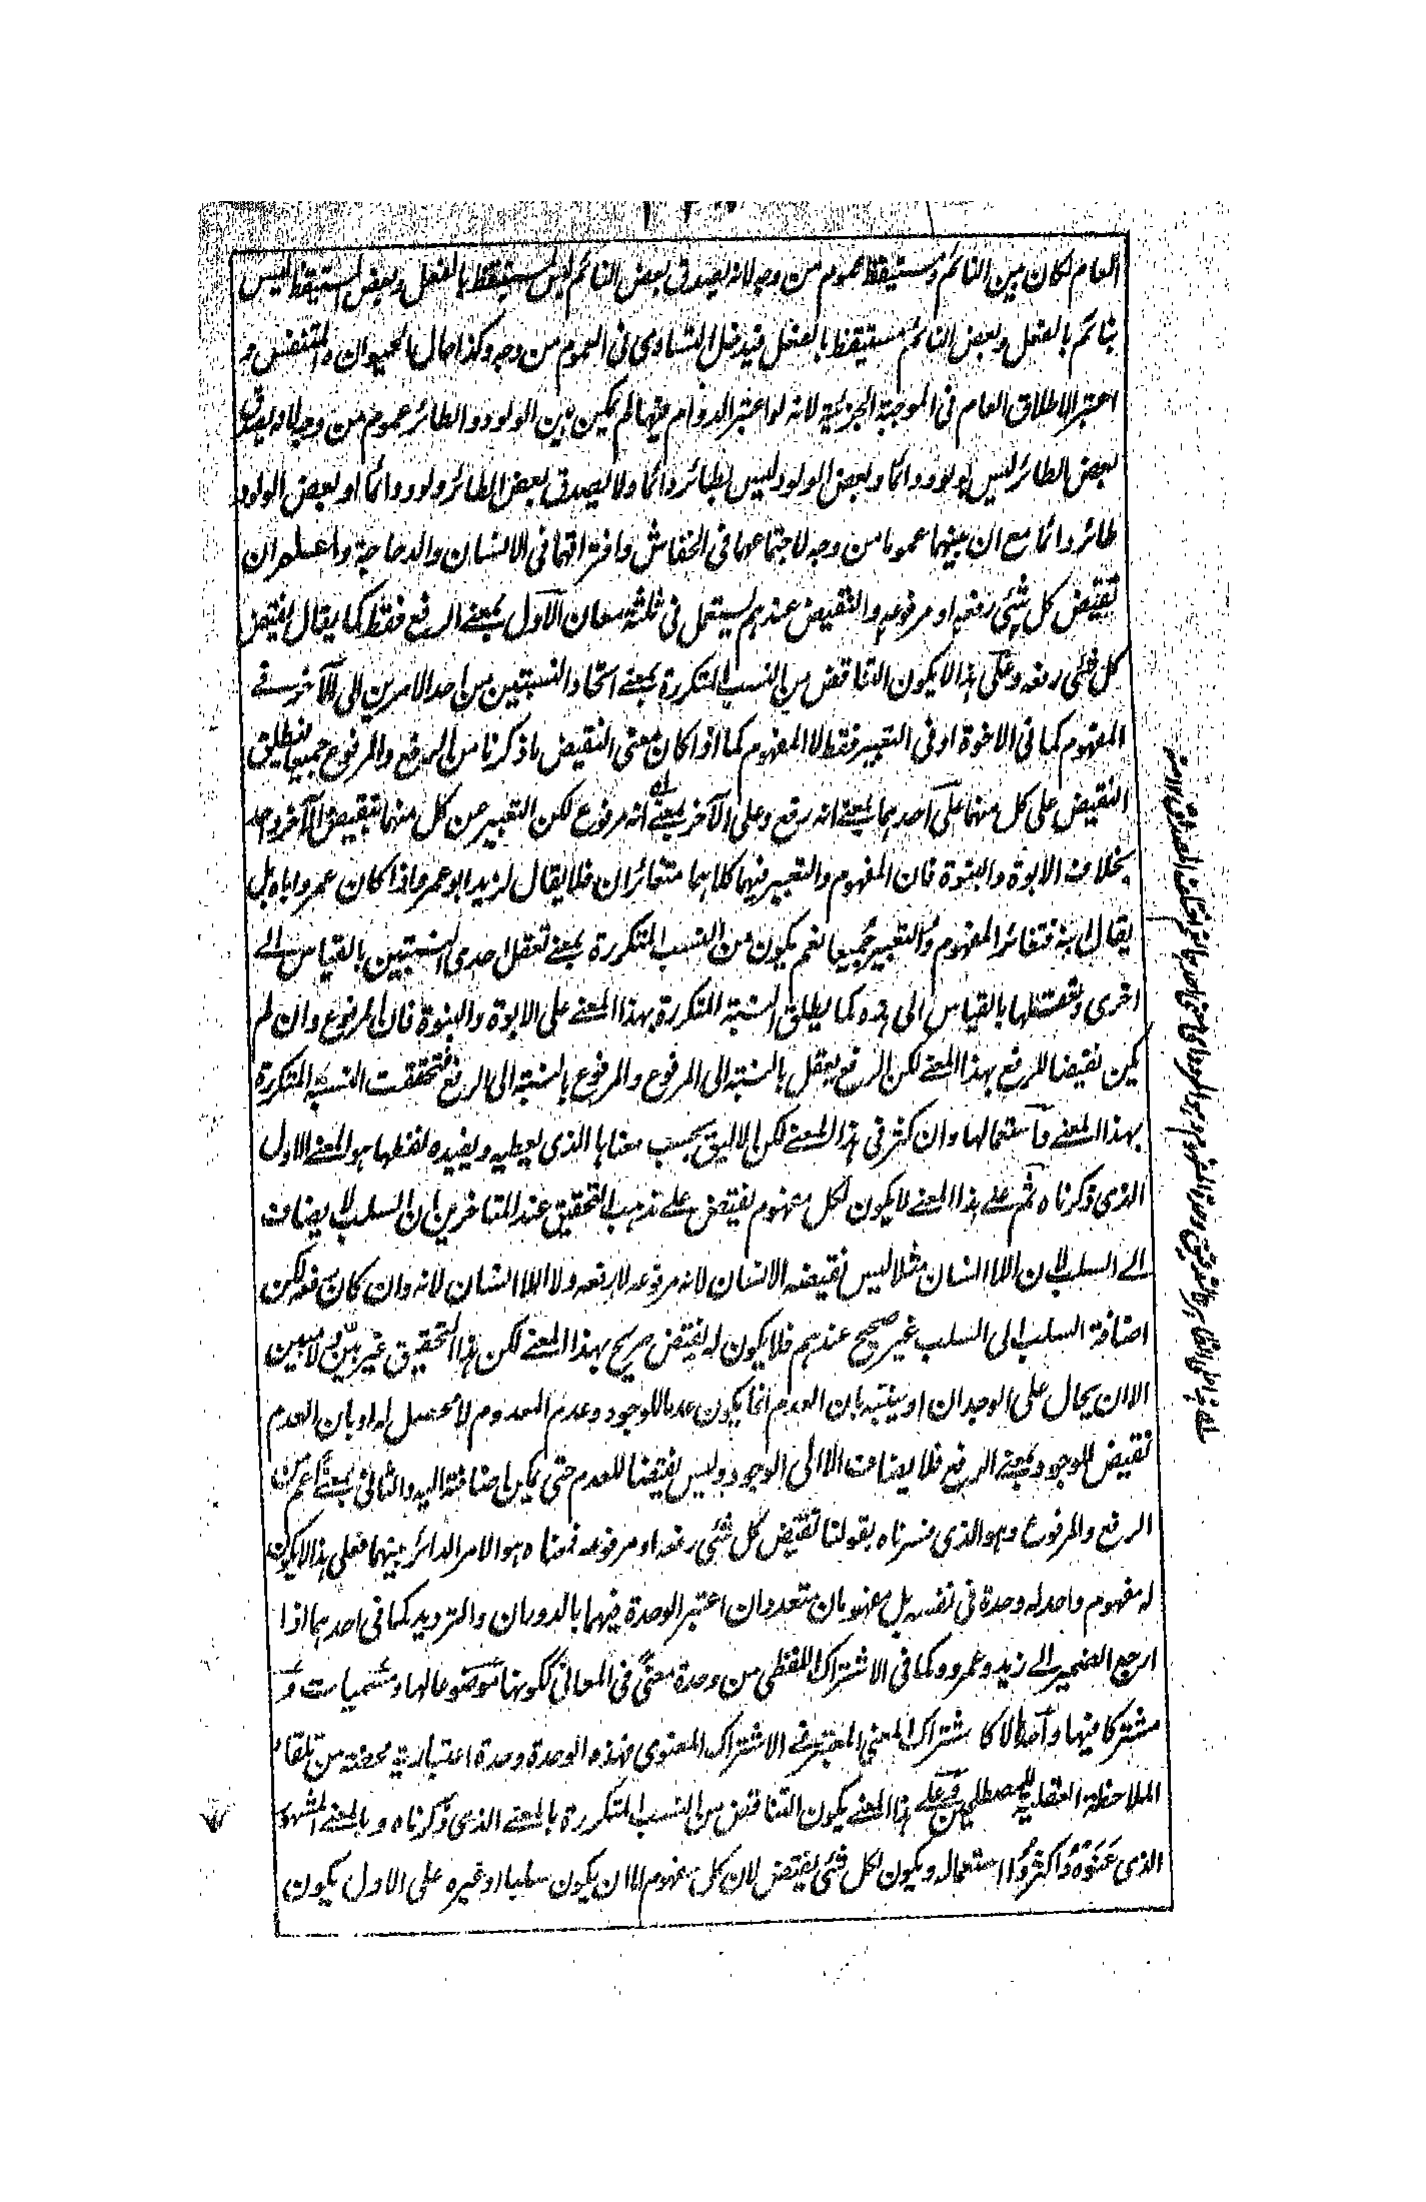 العام لكان بين النائم ومستيقظ عموم من وجه لانه يصدق بعض النائم ليس بمستيقظ بالفعل وبعض المستيقظ ليس
بنائم بالفعل وبعض النائم مستيقظ بالفعل فيدخل التساوى فى العموم من وجه وكذا حال الحيوان والمتنفس و
اعتبر الاطلاق العام فى الموجبة الجزئية لانه لو اعتبر الدوام فيها لم يكن بين الولود والطائر عموم من وجه لانه يصدق
بعض الطائر ليس بولود دائما وبعض الولود ليس بطائر دائما ولا يصدق بعض الطائر ولود دائما او بعض الولود
طائر دائما مع ان بينهما عموما من وجه لاجتماعهما فى الخفاش وافتراقهما فى الانسان والدجاجة واعلم ان
نقيض كل شئ رفعه او مرفوعه والنقيض عندهم يستعمل فى ثلثة معان الاول بمعنے الرفع فقط كما يقال نقيض
كل شئ رفعه وعلى هذا لا يكون التناقض من النسب المتكررة بمعنے اتحاد النسبتين من احد الامرين الى الآخر فے
المفهوم كما فى الاخوة او فى التعبير فقط لا المفهوم كما اذا كان معنى النقيض ما ذكرنا من الرفع والمرفوع جميعا فيطلق
النقيض على كل منهما على احدهما بمعنے انه رفع وعلى الآخر بمعنے انه مرفوع لكن التعبير عن كل منهما بنقيض الآخر واحد
بخلاف الابوة والبنوة فان المفهوم والتعبير فيهما كلاهما متغائران فلا يقال لزيد ابو عمرو اذا كان عمرو اباه بل
يقال ابنه فتغائر المفهوم والتعبير جميعا نعم يكون من النسب المتكررة بمعنے تعقل احدى النسبتين بالقياس الے
اخرى وتعقلها بالقياس الى هذه كما يطلق النسبة المتكررة بهذا المعنے على الابوة والبنوة فان المرفوع وان لم
يكن نقيضا للرفع بهذا المعنے لكن الرفع يعقل بالنسبة الى المرفوع والمرفوع بالنسبة الى الرفع فتحققت النسبة المتكررة
بهذا المعنے واستعمالها وان كثر فى هذا المعنے لكن الاليق بحسب معناها الذى يعطيه ويفيده لفظها هو المعنے الاول
الذى ذكرناه ثم على هذا المعنے لا يكون لكل مفهوم نقيض على مذهب التحقيق عند المتاخرين ان السلب لا يضاف
الے السلب لان اللاانسان مثلا ليس نقيضه الانسان لانه مرفوعه لا رفعه ولا اللااللاانسان لانه وان كان رفعه لكن
اضافة السلب الى السلب غير صحيح عندهم فلا يكون له نقيض صريح بهذا المعنے لكن هذا التحقيق غير بيّن ولا مبين
الا ان يحال على الوجدان او ينبّه بان العدم انما يكون عدما للوجود وعدم المعدوم لا محصل له او بان العدم
نقيض للوجود بمعنے الرفع فلا يضاف الا الى الوجود وليس نقيضا للعدم حتى يمكن اضافته اليه والثانى بمعنے اعم من
الرفع والمرفوع وهو الذى فسرناه بقولنا نقيض كل شئ رفعه او مرفوعه فمعناه هو الامر الدائر بينهما فعلى هذا لا يكون
له مفهوم واحد له وحدة فى نفسه بل مفهومان متعددان اعتبر الوحدة فيهما بالدوران والترديد كما فى احدهما اذا
ارجع الضمير الے زيد وعمرو وكما فى الاشتراك اللفظى من وحدة معنى فى المعانى لكونها موضوعا لها ومسميات و
مشتركا فيها وامثالا كاشتراك المعنى المعتبر فى الاشتراك المعنوى فهذه الوحدة وحدة اعتبارية محضة من تلقاء
الملاحظة العقلية للمصطلحين فعلے هذا المعنے يكون التناقض من النسب المتكررة بالمعنے الذى ذكرناه وبالمعنے المشهور
الذى عَنَوْهُ واكثروا استعماله ويكون لكل شئ نقيض لان كل مفهوم اما ان يكون سلبا او غيره على الاول يكون